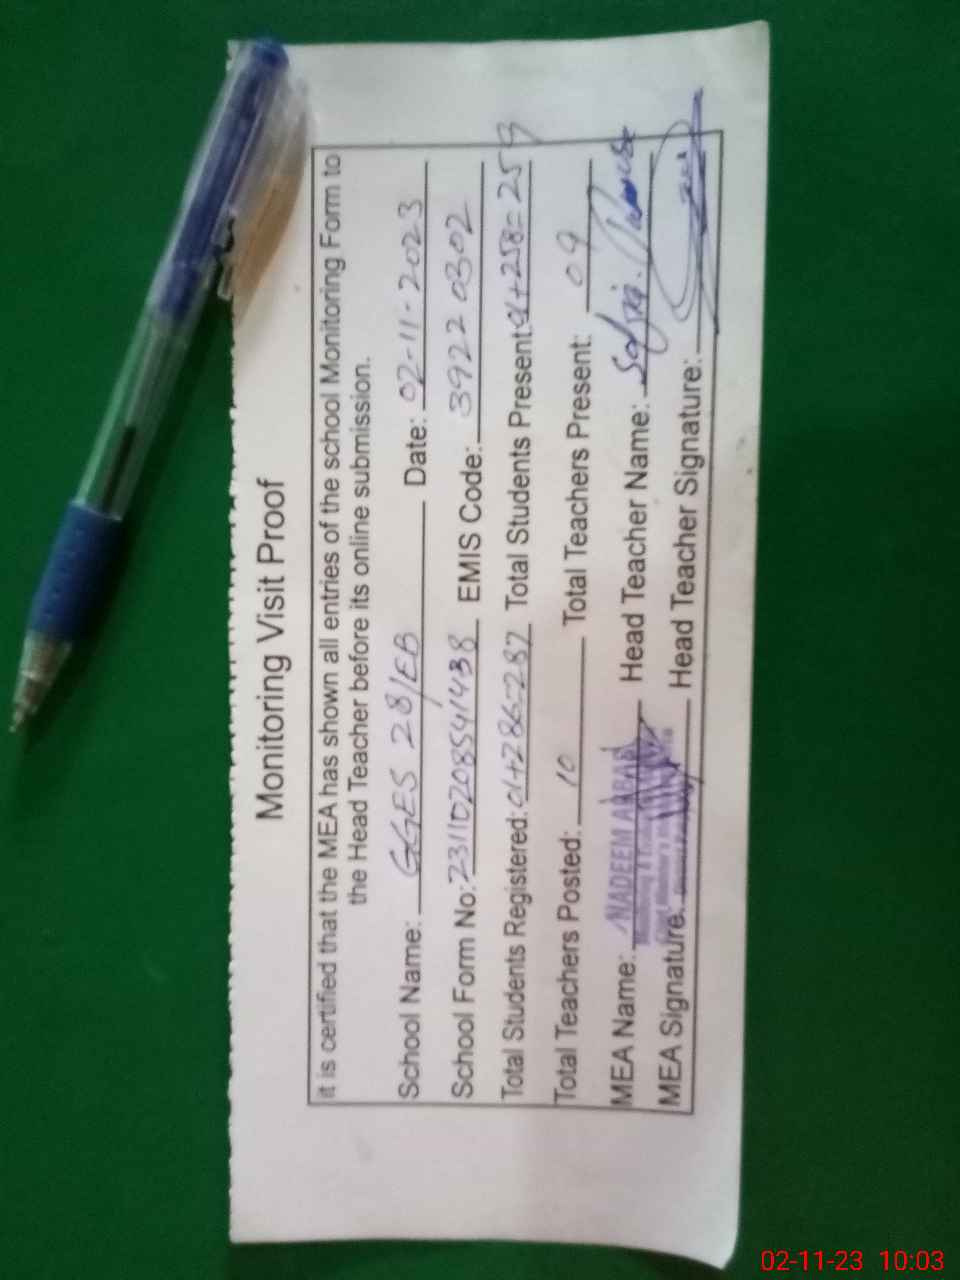 Monitoring Visit Proof
it is certified that the MEA has shown all entries of the school Monitoring Form to
the Head Teacher before its online submission.
School Name: GGES 28/EB Date: 02-11-2023
School Form No: 23110208541438 EMIS Code: 39220302
Total Students Registered: 01+286=287 Total Students Present: 01+258=259
Total Teachers Posted: 10 Total Teachers Present: 09
MEA Name: NADEEM ABBAS Head Teacher Name:
MEA Signature. Head Teacher Signature:
02-11-23 10:03